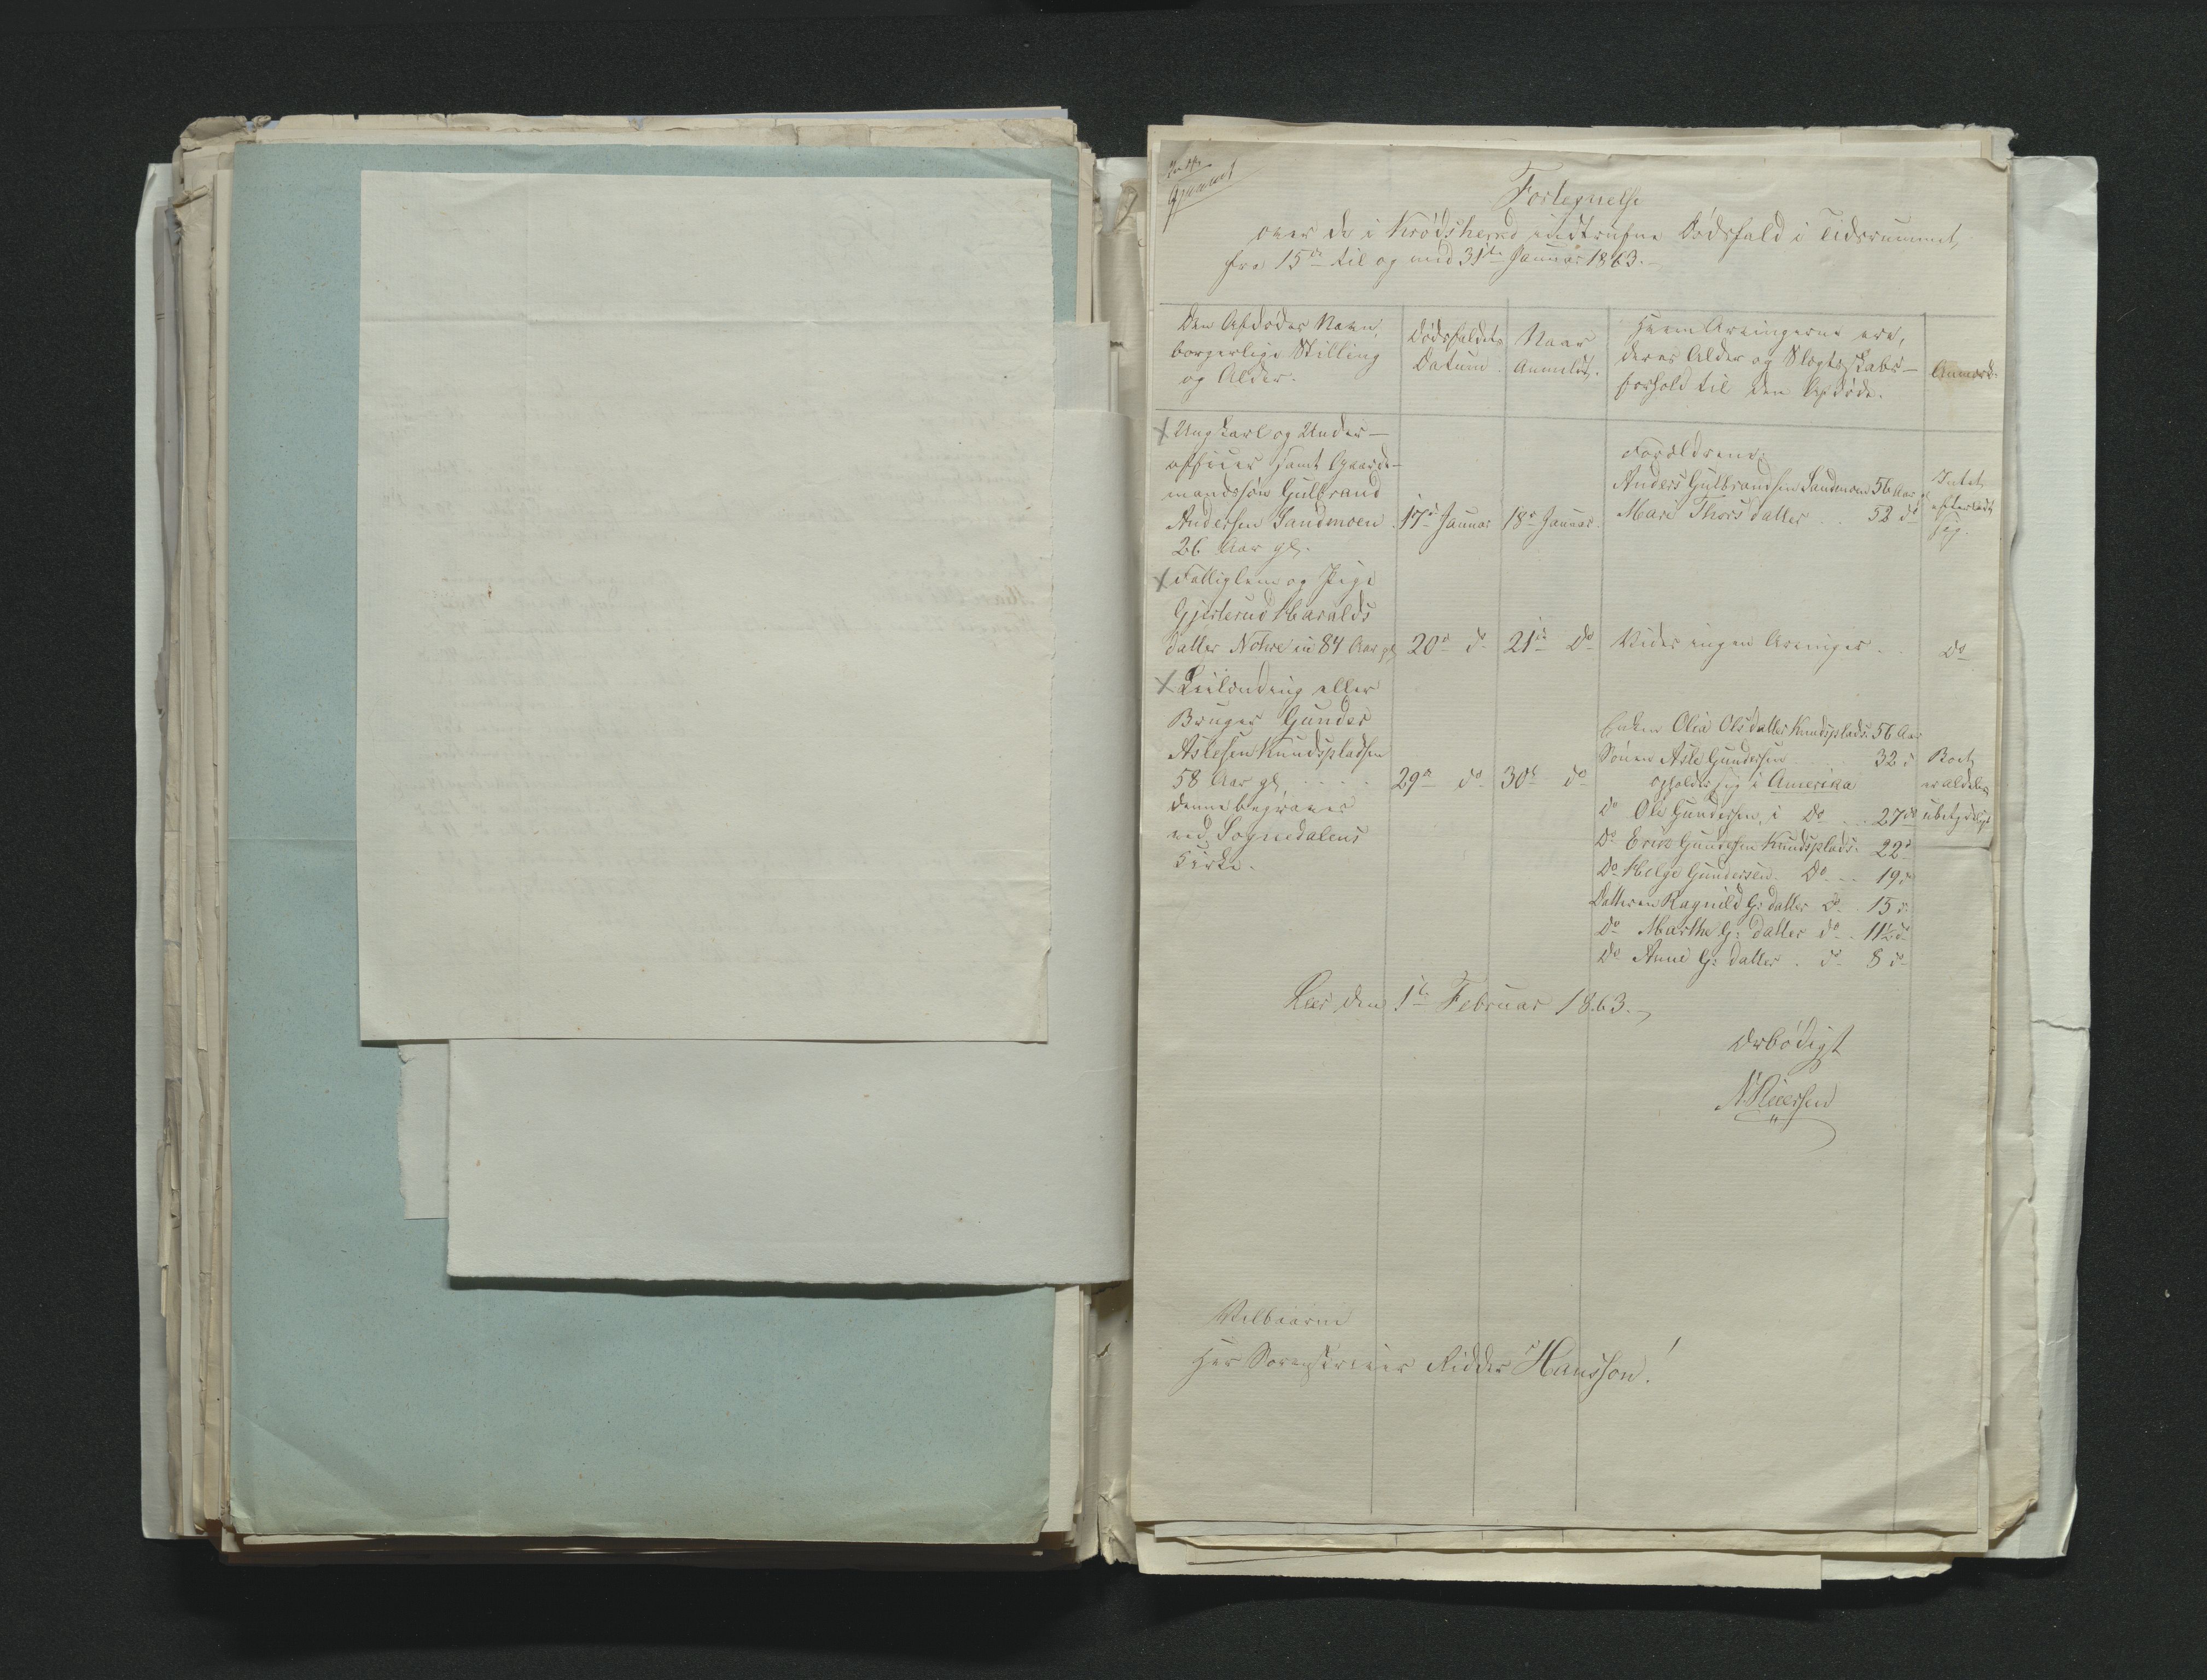 Fortegnelse
over de i Krødsherred indtrufne Dødsfald i Tidsrummet
fra 15de til og med 31te Januar 1863.
Den Afdødes Navn,
borgerlige Stilling
og Alder.
Dødsfaldets
Datum.
Naar
Anmeldt.
Hvem Arvingerne ere,
deres Alder og Slægtskabs-
forhold til den Afdøde.
Anmærk.
Ungkarl og Under-
officer samt Gaard-
mandssøn Gulbrand
Andersen Sandmoen
26 Aar gl.
17de Januar
18de Januar
Forældrene:
Anders Gulbrandsen Sandmoen 56 Aar gl
Mari Thorsdatter . . 52 do
Intet
efterladt
sig.
Fattiglem og Pige
Gjertrud Haralds
datter Nohre in 84 Aar gl
20de do
21de do
Vides ingen Arvinger . .
do
Leilænding eller
Bruger Gunder
Aslesen Kundspladsen
58 Aar gl. . . . .
denne begraves
ved Sognedalens
Kirke.
29de do
30te do
Enken Olea Olsdatter Kundsplads. 56 Aar
Sønen Asle Gundersen 32 d
opholder sig i Amerika
do Ole Gundersen, i do . . 27 do
do Erik Gundersen Kundsplads. 22 d
do Helge Gundersen. do . . 19 d
Datteren Ragnild G: datter do . 15 d.
do Marthe G: datter do . 11½ d
do Anne G: datter . do 8 d
Boet
er aldeles
ubetydeligt
Leer den 1te Februar 1863.
Ærbødigt
Velbaarne
Her Sorenskriver Ridder Hansson!